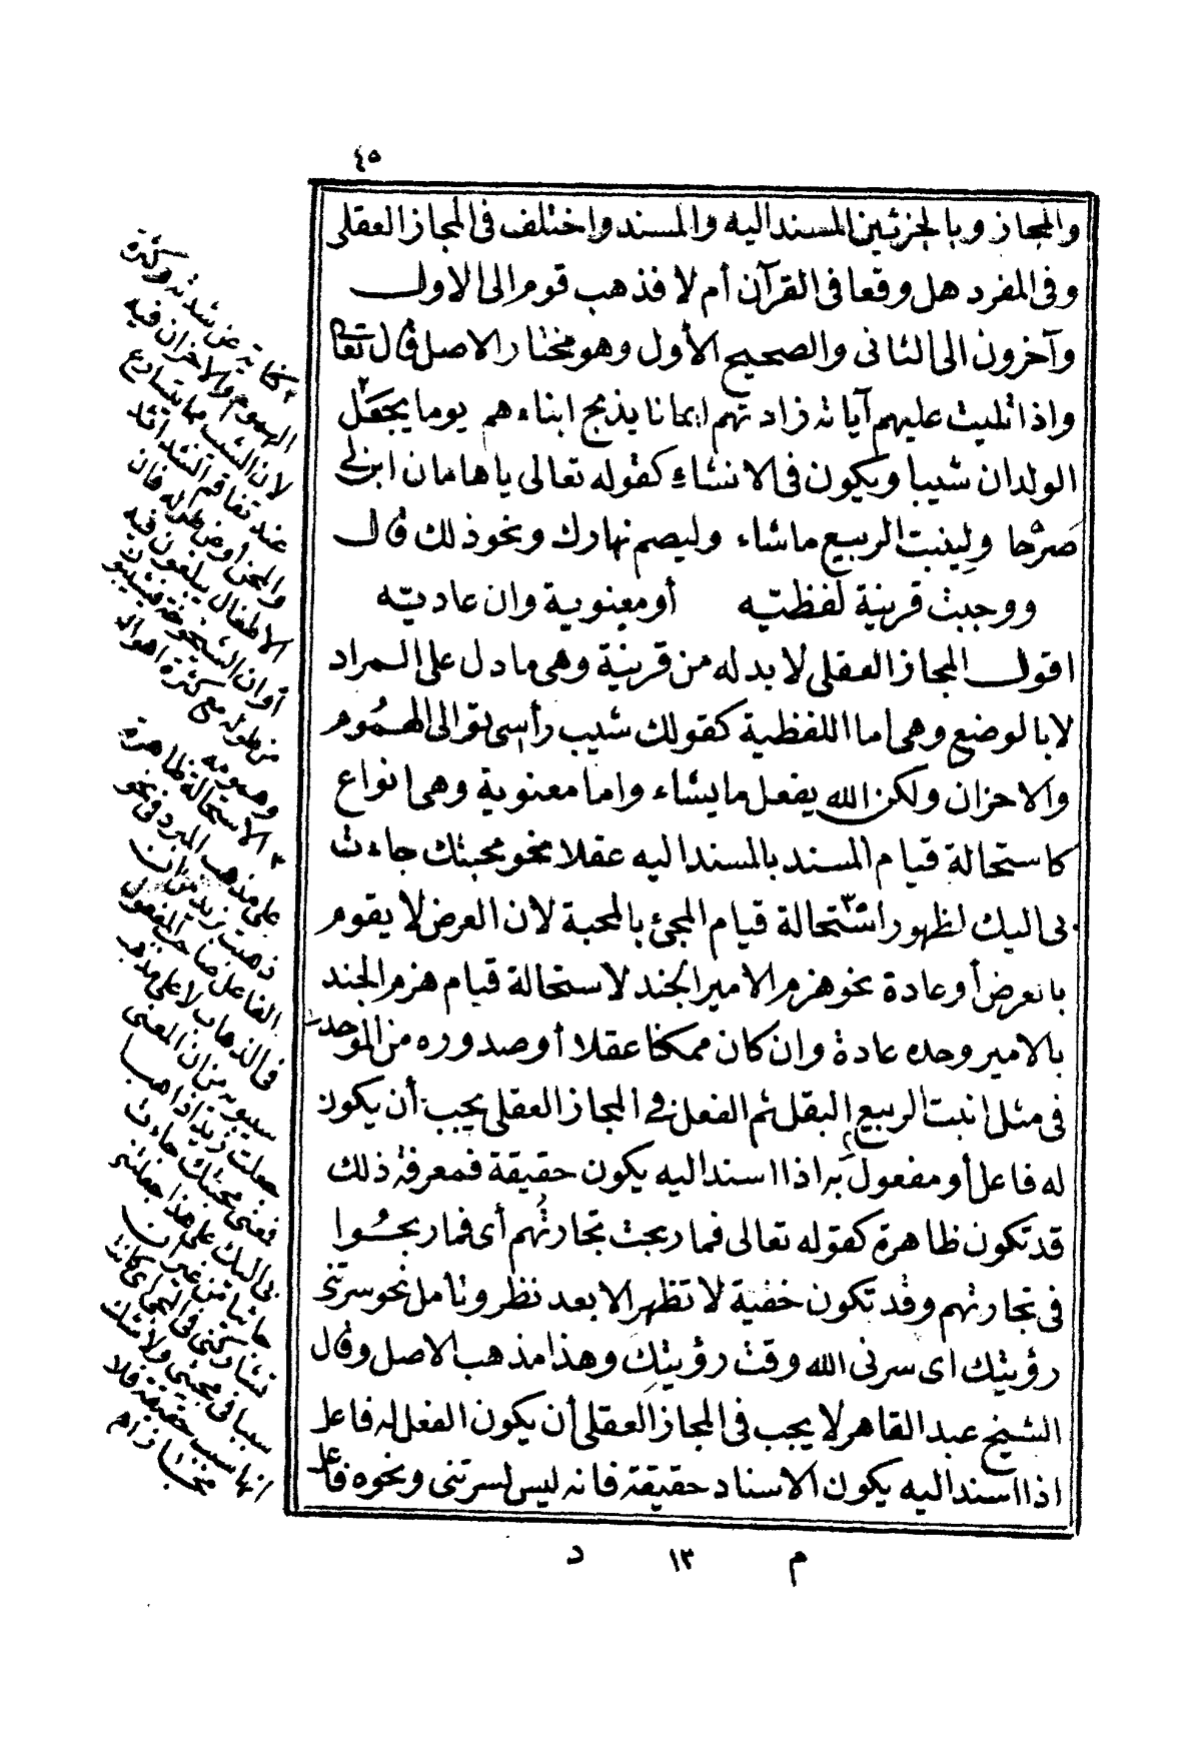 ٤٥
والمجاز وبالجزئين المسند اليه والمسند واختلف فى المجاز العقلى
وفى المفرد هل وقعا فى القرآن أم لا فذهب قوم الى الاول
وآخرون الى الثانى والصحيح الأول وهو مختار الاصل قال تعالى
واذا تليت عليهم آياته زادتهم ايمانا يذبح ابناءهم يوما يجعل
الولدان شيبا ويكون فى الانشاء كقوله تعالى ياهامان ابن لى
صرحا ولينبت الربيع ماشاء وليصم نهارك ونحوذلك قال
ووجبت قرينة لفظيّه أومعنوية وان عاديّه
اقول المجاز العقلى لابدله من قرينة وهى مادل على المراد
لابالوضع وهى اما اللفظية كقولك شيب رأسى توالى الهموم
والاحزان ولكن الله يفعل مايشاء واما معنوية وهى انواع
كاستحالة قيام المسند بالمسند اليه عقلا نحو محبتك جاءت
بى اليك لظهور استحالة٣ قيام المجئ بالمحبة لان العرض لايقوم
بالعرض أوعادة نحو هزم الامير الجند لاستحالة قيام هزم الجند
بالامير وحده عادة وان كان ممكنا عقلا أوصدوره من الموحد
فى مثل انبت الربيع البقل ثم الفعل فى المجاز العقلى يجب أن يكون
له فاعل أو مفعول به اذا اسند اليه يكون حقيقة فمعرفة ذلك
قدتكون ظاهرة كقوله تعالى فماربحت تجارتهم أى فماربحوا
فى تجارتهم وقد تكون خفية لاتظهر الابعد نظر وتأمل نحو سرتنى
رؤيتك اى سرنى الله وقت رؤيتك وهذا مذهب الاصل وقال
الشيخ عبدالقاهر لايجب فى المجاز العقلى أن يكون الفعل له فاعل
اذا اسند اليه يكون الاسناد حقيقة فانه ليس لسرتنى ونحوه فاعل
م ١٣ د
٢ كناية عن شدته وكثرة
الهموم والاحزان فيه
لان الشيب مما يتسارع
عند تفاقم الشدائد
والمحن أوعن طوله فان
الاطفال يبلغون فيه
أوان الشيخوخة فيشيبون
من طوله مع كثرة اهواله
وهمومه
٣ الاستحالة ظاهرة
على مذهب المبرد فى نحو
ذهبت بزيد من ان
الفاعل صاحب المفعول
فى الذهاب لا على مذهب
سيبويه من ان المعنى
جعلت زيدا ذاهبا
فمعنى محبتك جاءت
بى اليك على هذا جعلتنى
جائيا من غير ان
تشاركنى فى المجئ اى كانت
سببا فى مجيئى ولاشك
انها سبب حقيقة فلا
مجازا هم